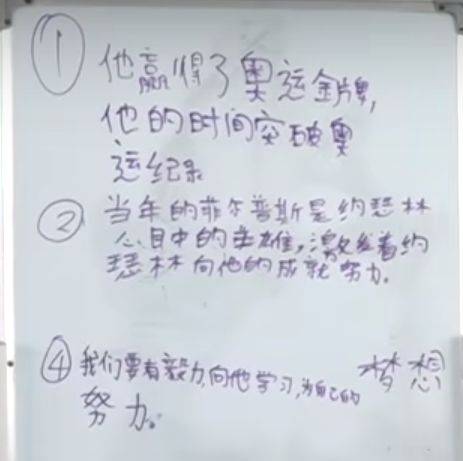 ① 他赢得了奥运金牌,
他的时间突破奥
运纪录
② 当年的菲尔普斯是约瑟林
心目中的英雄,激发着约
瑟林向他的成就努力.
④ 我们要有毅力,向他学习,为自己的 梦想
努力。